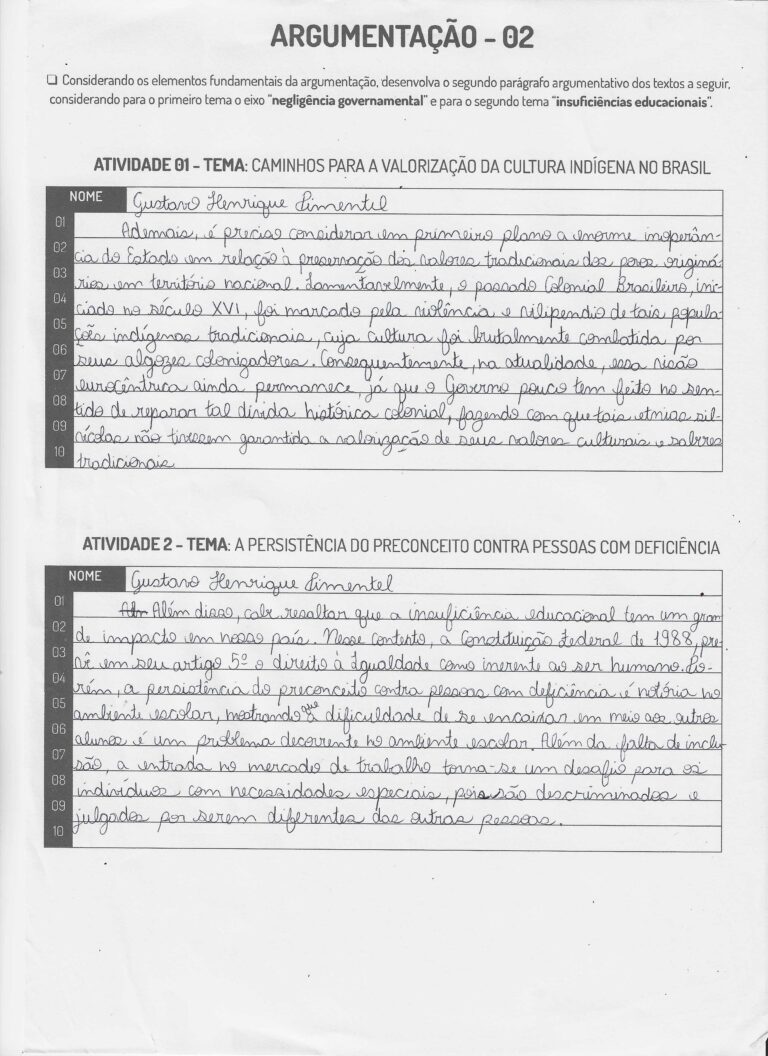 ARGUMENTAÇÃO - 02
❑ Considerando os elementos fundamentais da argumentação, desenvolva o segundo parágrafo argumentativo dos textos a seguir,
considerando para o primeiro tema o eixo "negligência governamental" e para o segundo tema "insuficiências educacionais".
ATIVIDADE 01 - TEMA: CAMINHOS PARA A VALORIZAÇÃO DA CULTURA INDÍGENA NO BRASIL
NOME Gustavo Henrique Pimentel
01 Ademais, é preciso considerar em primeiro plano a enorme inoperân-
02 cia do Estado em relação à preservação dos valores tradicionais dos povos originá-
03 rios em território nacional. Lamentavelmente, o passado Colonial Brasileiro, ini-
04 ciado no século XVI, foi marcado pela violência e vilipendio de tais popula-
05 ções indígenas tradicionais, cuja cultura foi brutalmente combatida por
06 seus algozes colonizadores. Consequentemente, na atualidade, essa visão
07 eurocêntrica ainda permanece, já que o Governo pouco tem feito no sen-
08 tido de reparar tal dívida histórica colonial, fazendo com que tais etnias sil-
09 vícolas não tivessem garantida a valorização de seus valores culturais e saberes
10 tradicionais
ATIVIDADE 2 - TEMA: A PERSISTÊNCIA DO PRECONCEITO CONTRA PESSOAS COM DEFICIÊNCIA
NOME Gustavo Henrique Pimentel
01 Além disso, cabe resaltar que a insuficiência educacional tem um gran-
02 de impacto em nosso país. Nesse contexto, a Constituição Federal de 1988, pre-
03 vê em seu artigo 5º o direito à Igualdade como inerente ao ser humano. Po-
04 rém, a persistência do preconceito contra pessoas com deficiência é notória no
05 ambiente escolar, mostrando que a dificuldade de se encaixar em meio aos outros
06 alunos é um problema decorrente no ambiente escolar. Além da falta de inclu-
07 são, a entrada no mercado de trabalho torna-se um desafio para os
08 indivíduos com necessidades especiais, pois são discriminados e
09 julgados por serem diferentes das outras pessoas.
10